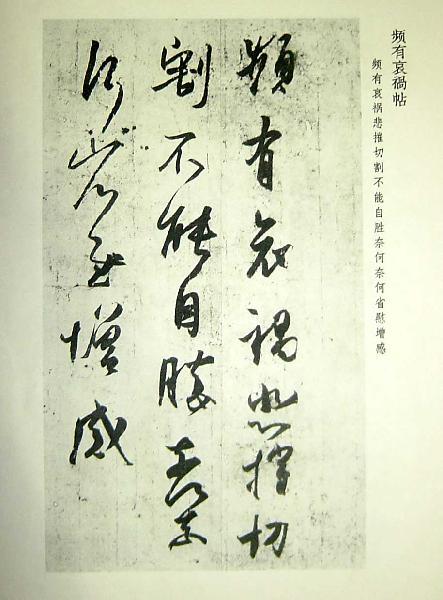 频有哀禍帖
频有哀祸悲摧切割不能自胜奈何奈何省慰增感
頻有哀禍悲摧切
割不能自勝奈何奈
何省慰增感